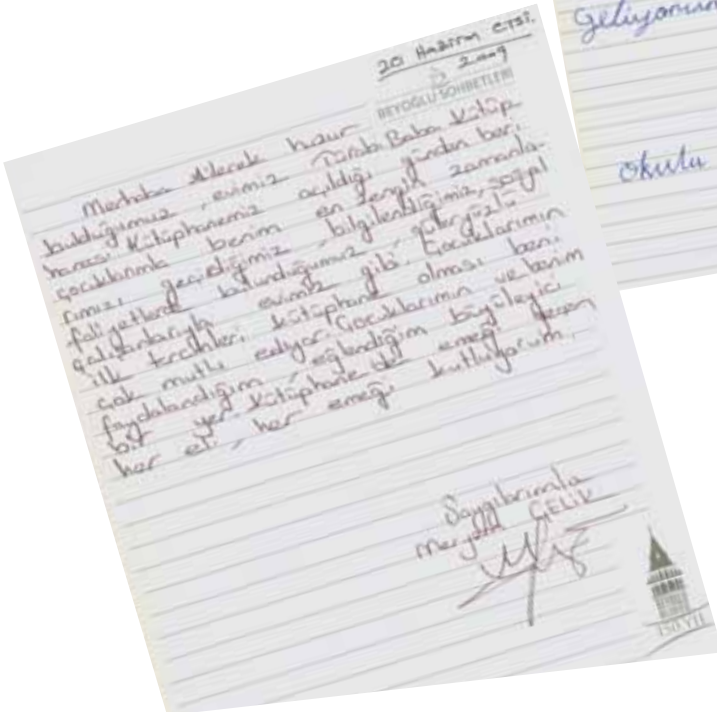 20 Haziran CTSİ.
2009
BEYOĞLU SOHBETLERİ
Merhaba diyerek huzur
bulduğumuz, evimiz Turabi Baba Kütüp
hanesi. Kütüphanemiz açıldığı günden beri,
çocuklarımla benim en zengin zamanla-
rımızı geçirdiğimiz, bilgilendiğimiz, sosyal
faliyetlerde bulunduğumuz, güler yüzlü
çalışanlarıyla evimiz gibi. Çocuklarımın
ilk tercihleri kütüphane olması beni
çok mutlu ediyor. Çocuklarımın ve benim
faydalandığım, eğlendiğim büyüleyici
bir yer. Kütüphane'de emeği geçen
her eli, her emeği kutluyorum.
Saygılarımla
Meryem ÇELİK
150.YIL
Geliyorum
okulu